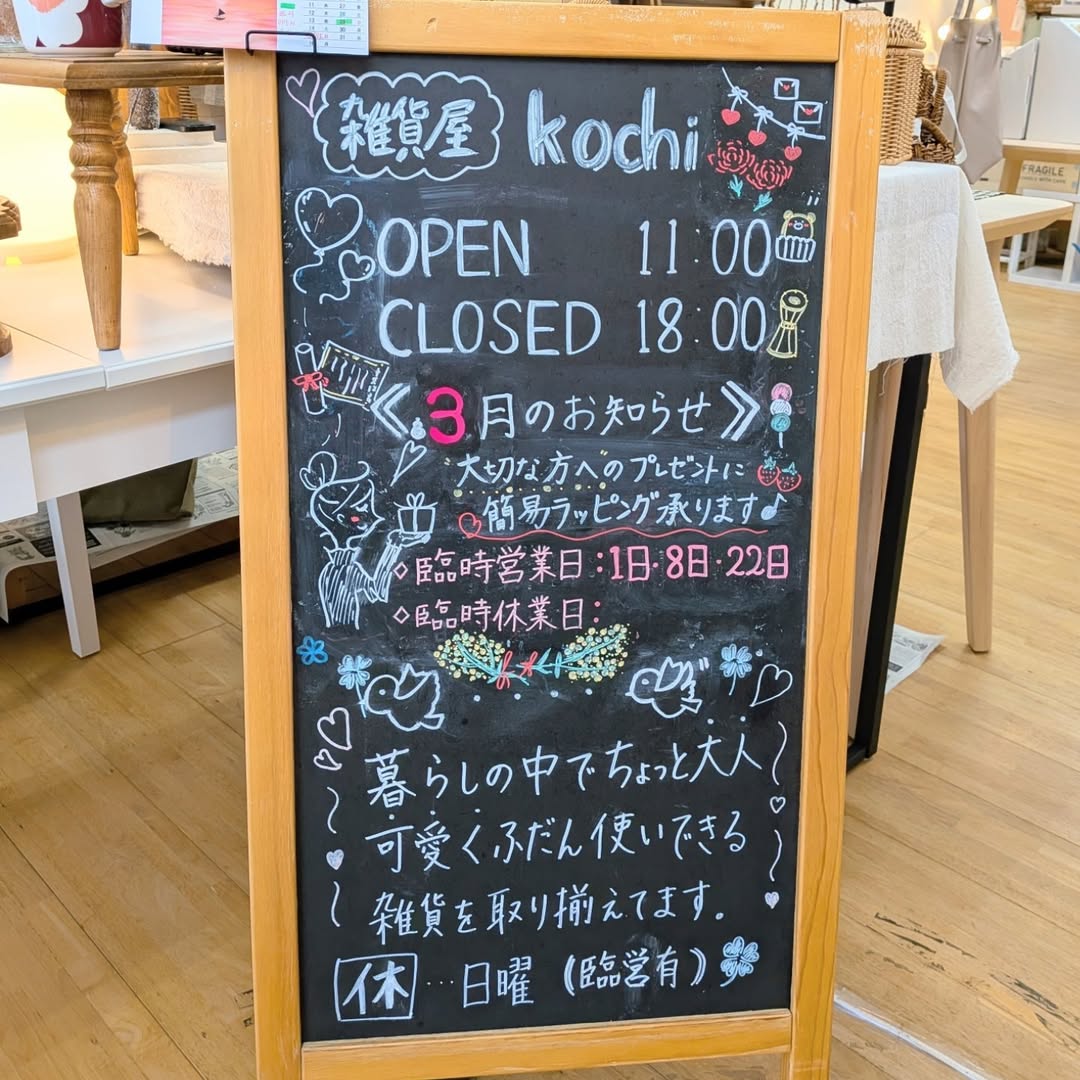 雑貨屋 kochi
OPEN 11:00
CLOSED 18:00
《3月のお知らせ》
大切な方へのプレゼントに
簡易ラッピング承ります♪
◇臨時営業日:1日・8日・22日
◇臨時休業日:
暮らしの中でちょっと大人
可愛くふだん使いできる
雑貨を取り揃えてます。
休…日曜(臨営有)
FRAGILE